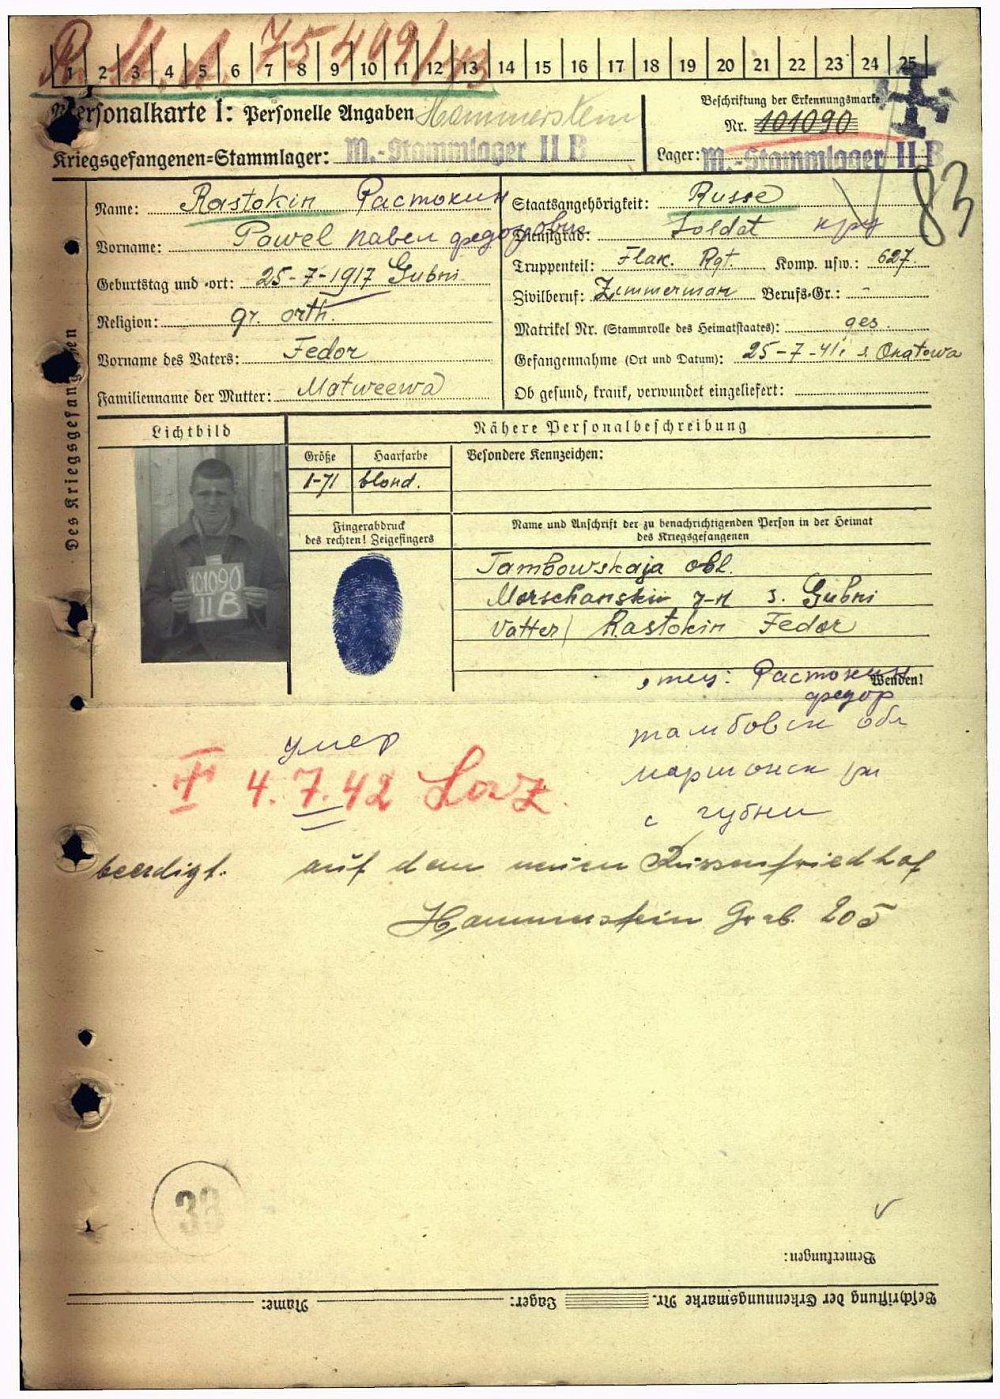 R. 11. 75409/43
1 2 3 4 5 6 7 8 9 10 11 12 13 14 15 16 17 18 19 20 21 22 23 24 25
Personalkarte I: Personelle Angaben Hammerstein
Beschriftung der Erkennungsmarke
Nr. 101090
Kriegsgefangenen=Stammlager: M.-Stammlager II B
Lager: M.-Stammlager II B
83
Des Kriegsgefangenen
Name: Rastokin Растокин
Vorname: Pawel Павел Федорович
Geburtstag und -ort: 25-7-1917 Gubni
Religion: gr. orth.
Vorname des Vaters: Fedor
Familienname der Mutter: Matweewa
Staatsangehörigkeit: Russe
Dienstgrad: Soldat кр
Truppenteil: Flak. Rgt. Komp. usw.: 627
Zivilberuf: Zimmerman Berufs-Gr.: -
Matrikel Nr. (Stammrolle des Heimatstaates): ges.
Gefangennahme (Ort und Datum): 25-7-41
Ob gesund, krank, verwundet eingeliefert:
Lichtbild
Nähere Personalbeschreibung
Größe Haarfarbe Besondere Kennzeichen:
1-71 blond.
101090
II B
Fingerabdruck
des rechten! Zeigefingers
Name und Anschrift der zu benachrichtigenden Person in der Heimat
des Kriegsgefangenen
Tambowskaja obl.
Morschanskiu r-n s. Gubni
Vatter/ Rastokin Fedor
Wenden!
отец: Растокин
федор
тамбовск обл
маршонск рн
с губни
умер
4.7.42 Laz.
beerdigt. auf dem neuen Russenfriedhof
Hammerstein Grab. 205
33
Bemerkungen:
Beschriftung der Erkennungsmarke Nr. Lager: Name: